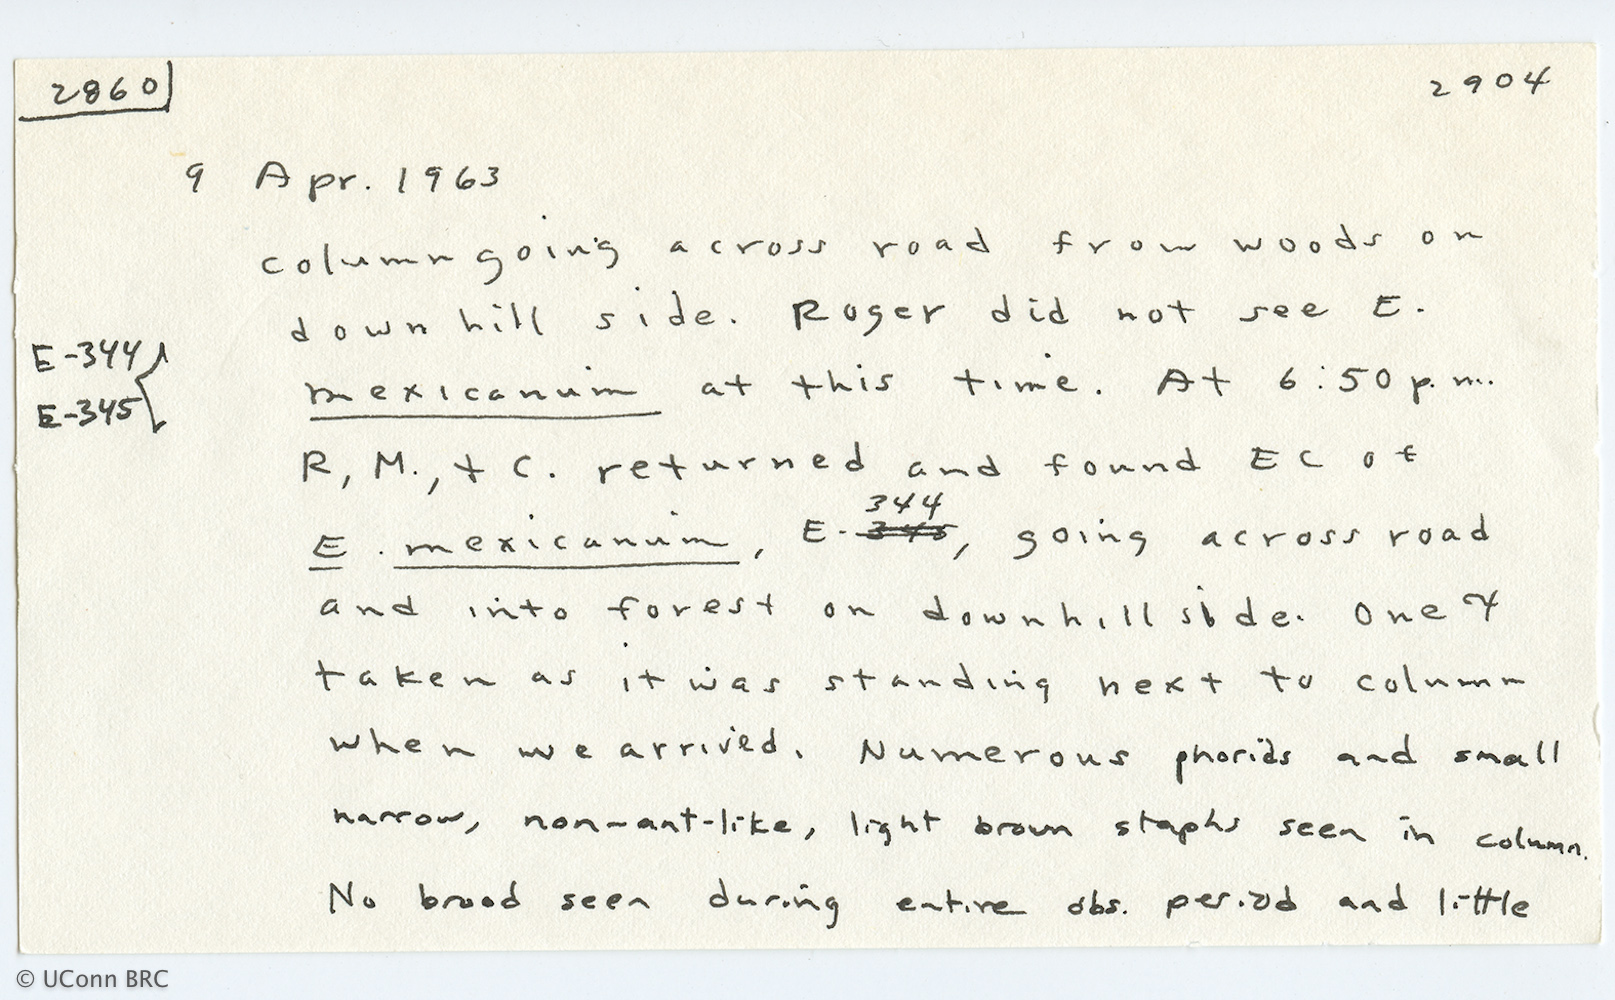 2860
2904
9 Apr. 1963
column going across road from woods on
downhill side. Roger did not see E.
E-344
E-345
mexicanum at this time. At 6:50 p.m.
R, M., + C. returned and found EC of
E. mexicanum, E-344, going across road
and into forest on downhill side. One
taken as it was standing next to column
when we arrived. Numerous phorids and small
narrow, non-ant-like, light brown staphs seen in column.
No brood seen during entire obs. period and little
© UConn BRC